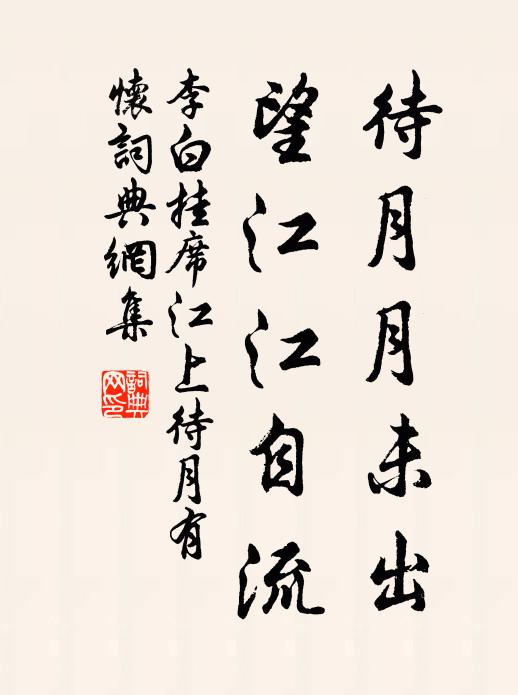 待月月未出
望江江自流
李白挂席江上待月有
懷詞典網集
詞典
网印